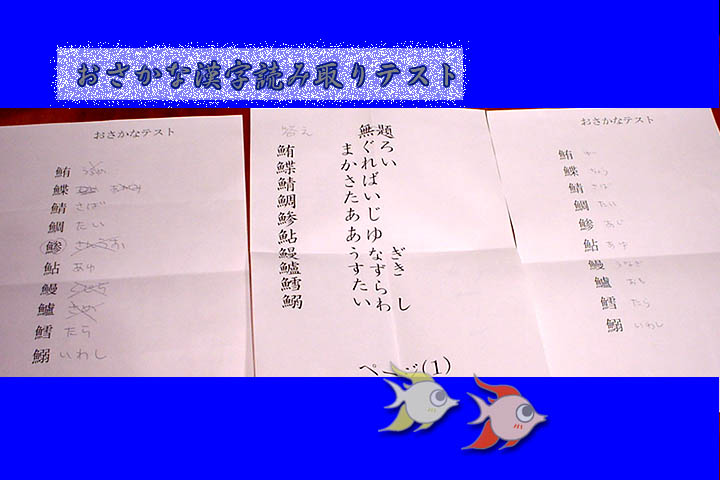 おさかな漢字読み取りテスト
おさかなテスト
鮪
鰈
鯖 さば
鯛 たい
鯵
鮎 あゆ
鰻
鱸
鱈 たら
鰯 いわし
答え 無題
鮪 まぐろ
鰈 かれい
鯖 さば
鯛 たい
鯵 あじ
鮎 あゆ
鰻 うなぎ
鱸 すずき
鱈 たら
鰯 いわし
ページ(1)
おさかなテスト
鮪
鰈 ちょう
鯖 さば
鯛 たい
鯵 あじ
鮎 あゆ
鰻 うなぎ
鱸
鱈 たら
鰯 いわし